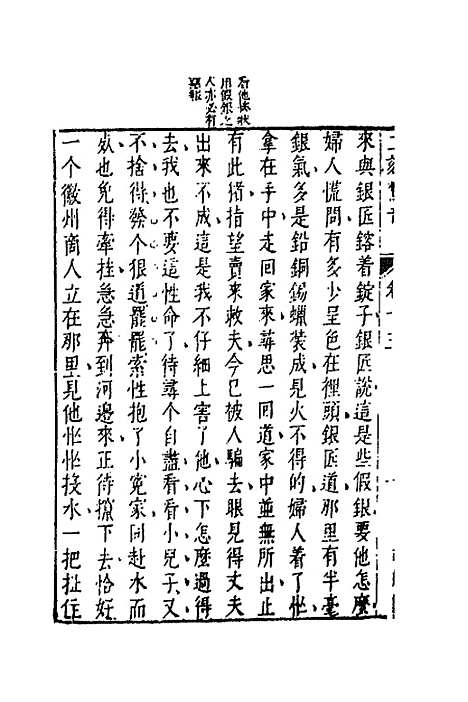 看他慘狀
用假銀之
人亦必有
惡報
來與銀匠鎔着錠子銀匠說這是些假銀要他怎麼
婦人慌問有多少呈色在裡頭銀匠道那里有半毫
銀氣多是鉛銅錫蠟裝成見火不得的婦人着了忙
拿在手中走回家來尋思一回道家中並無所出止
有此猪指望賣來救夫今已被人騙去眼見得丈夫
出來不成這是我不仔細上害了他心下怎麼過得
去我也不要這性命了待尋個自盡看看小兒子又
不捨得發個狠道罷罷索性抱了小冤家同赴水而
死也免得牽挂急急奔到河邊來正待攛下去恰好
一個徽州商人立在那里見他忙忙投水一把扯住